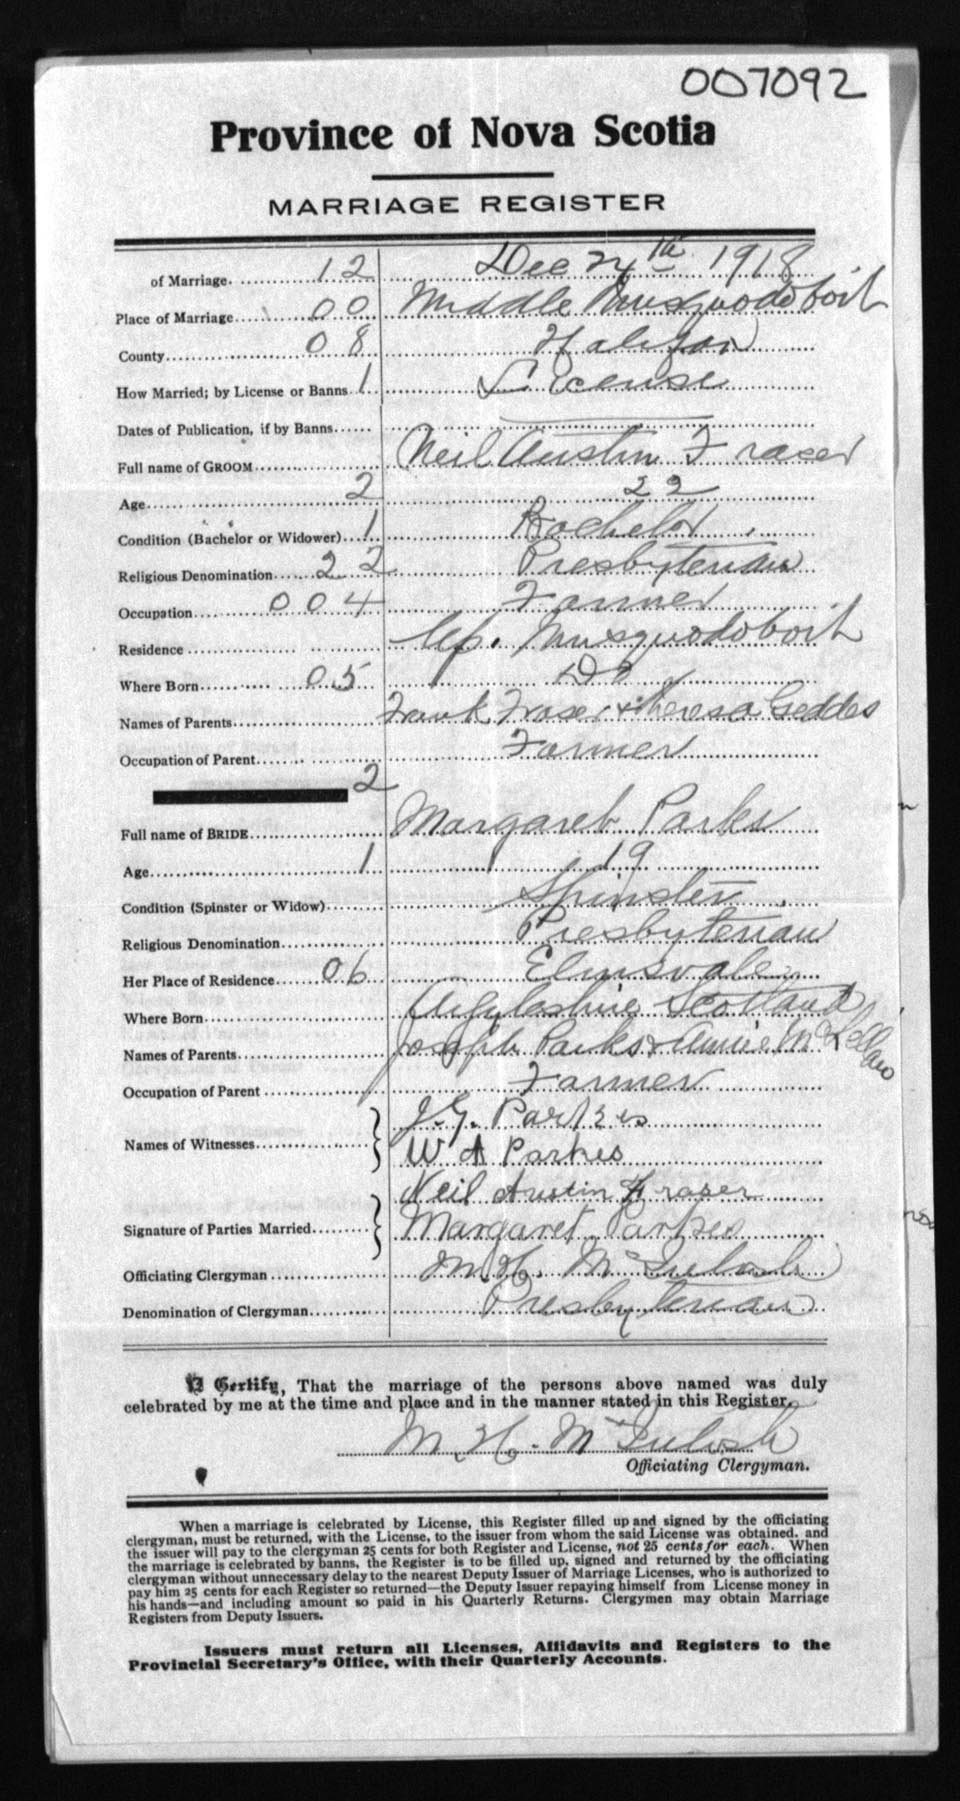 007092
Province of Nova Scotia
MARRIAGE REGISTER
of Marriage. 12 Dec 24th 1918
Place of Marriage 00 Middle Musquodoboit
County 08 Halifax
How Married; by License or Banns 1 License
Dates of Publication, if by Banns
Full name of GROOM Neil Austin Fraser
Age 2 22
Condition (Bachelor or Widower) 1 Bachelor
Religious Denomination 22 Presbyterian
Occupation 004 Farmer
Residence Up. Musquodoboit
Where Born 05 Do
Names of Parents Frank Fraser & Theresa Geddes
Occupation of Parent Farmer
2
Full name of BRIDE Margaret Parks
Age 1 19
Condition (Spinster or Widow) Spinster
Religious Denomination Presbyterian
Her Place of Residence 06 Elmsvale
Where Born Argyleshire Scotland
Names of Parents Joseph Parks & Annie McKellan
Occupation of Parent Farmer
Names of Witnesses J. G. Parkes
W A Parkes
Neil Austin Fraser
Signature of Parties Married Margaret Parkes
Officiating Clergyman M. H.
Denomination of Clergyman Presbyterian
I Certify, That the marriage of the persons above named was duly
celebrated by me at the time and place and in the manner stated in this Register.
M. H.
Officiating Clergyman.
When a marriage is celebrated by License, this Register filled up and signed by the officiating
clergyman, must be returned, with the License, to the issuer from whom the said License was obtained. and
the issuer will pay to the clergyman 25 cents for both Register and License, not 25 cents for each. When
the marriage is celebrated by banns, the Register is to be filled up, signed and returned by the officiating
clergyman without unnecessary delay to the nearest Deputy Issuer of Marriage Licenses, who is authorized to
pay him 25 cents for each Register so returned—the Deputy Issuer repaying himself from License money in
his hands—and including amount so paid in his Quarterly Returns. Clergymen may obtain Marriage
Registers from Deputy Issuers.
Issuers must return all Licenses, Affidavits and Registers to the
Provincial Secretary's Office, with their Quarterly Accounts.